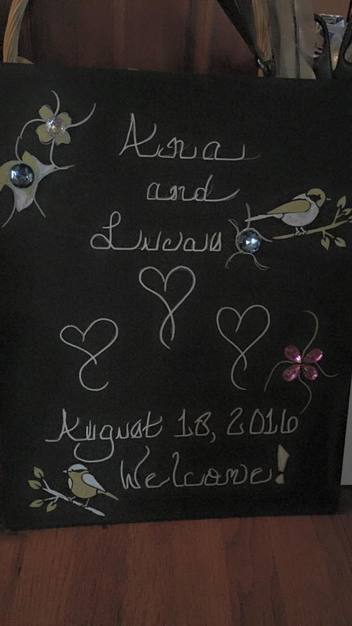 Ana
and
Lucas
August 18, 2016
Welcome!